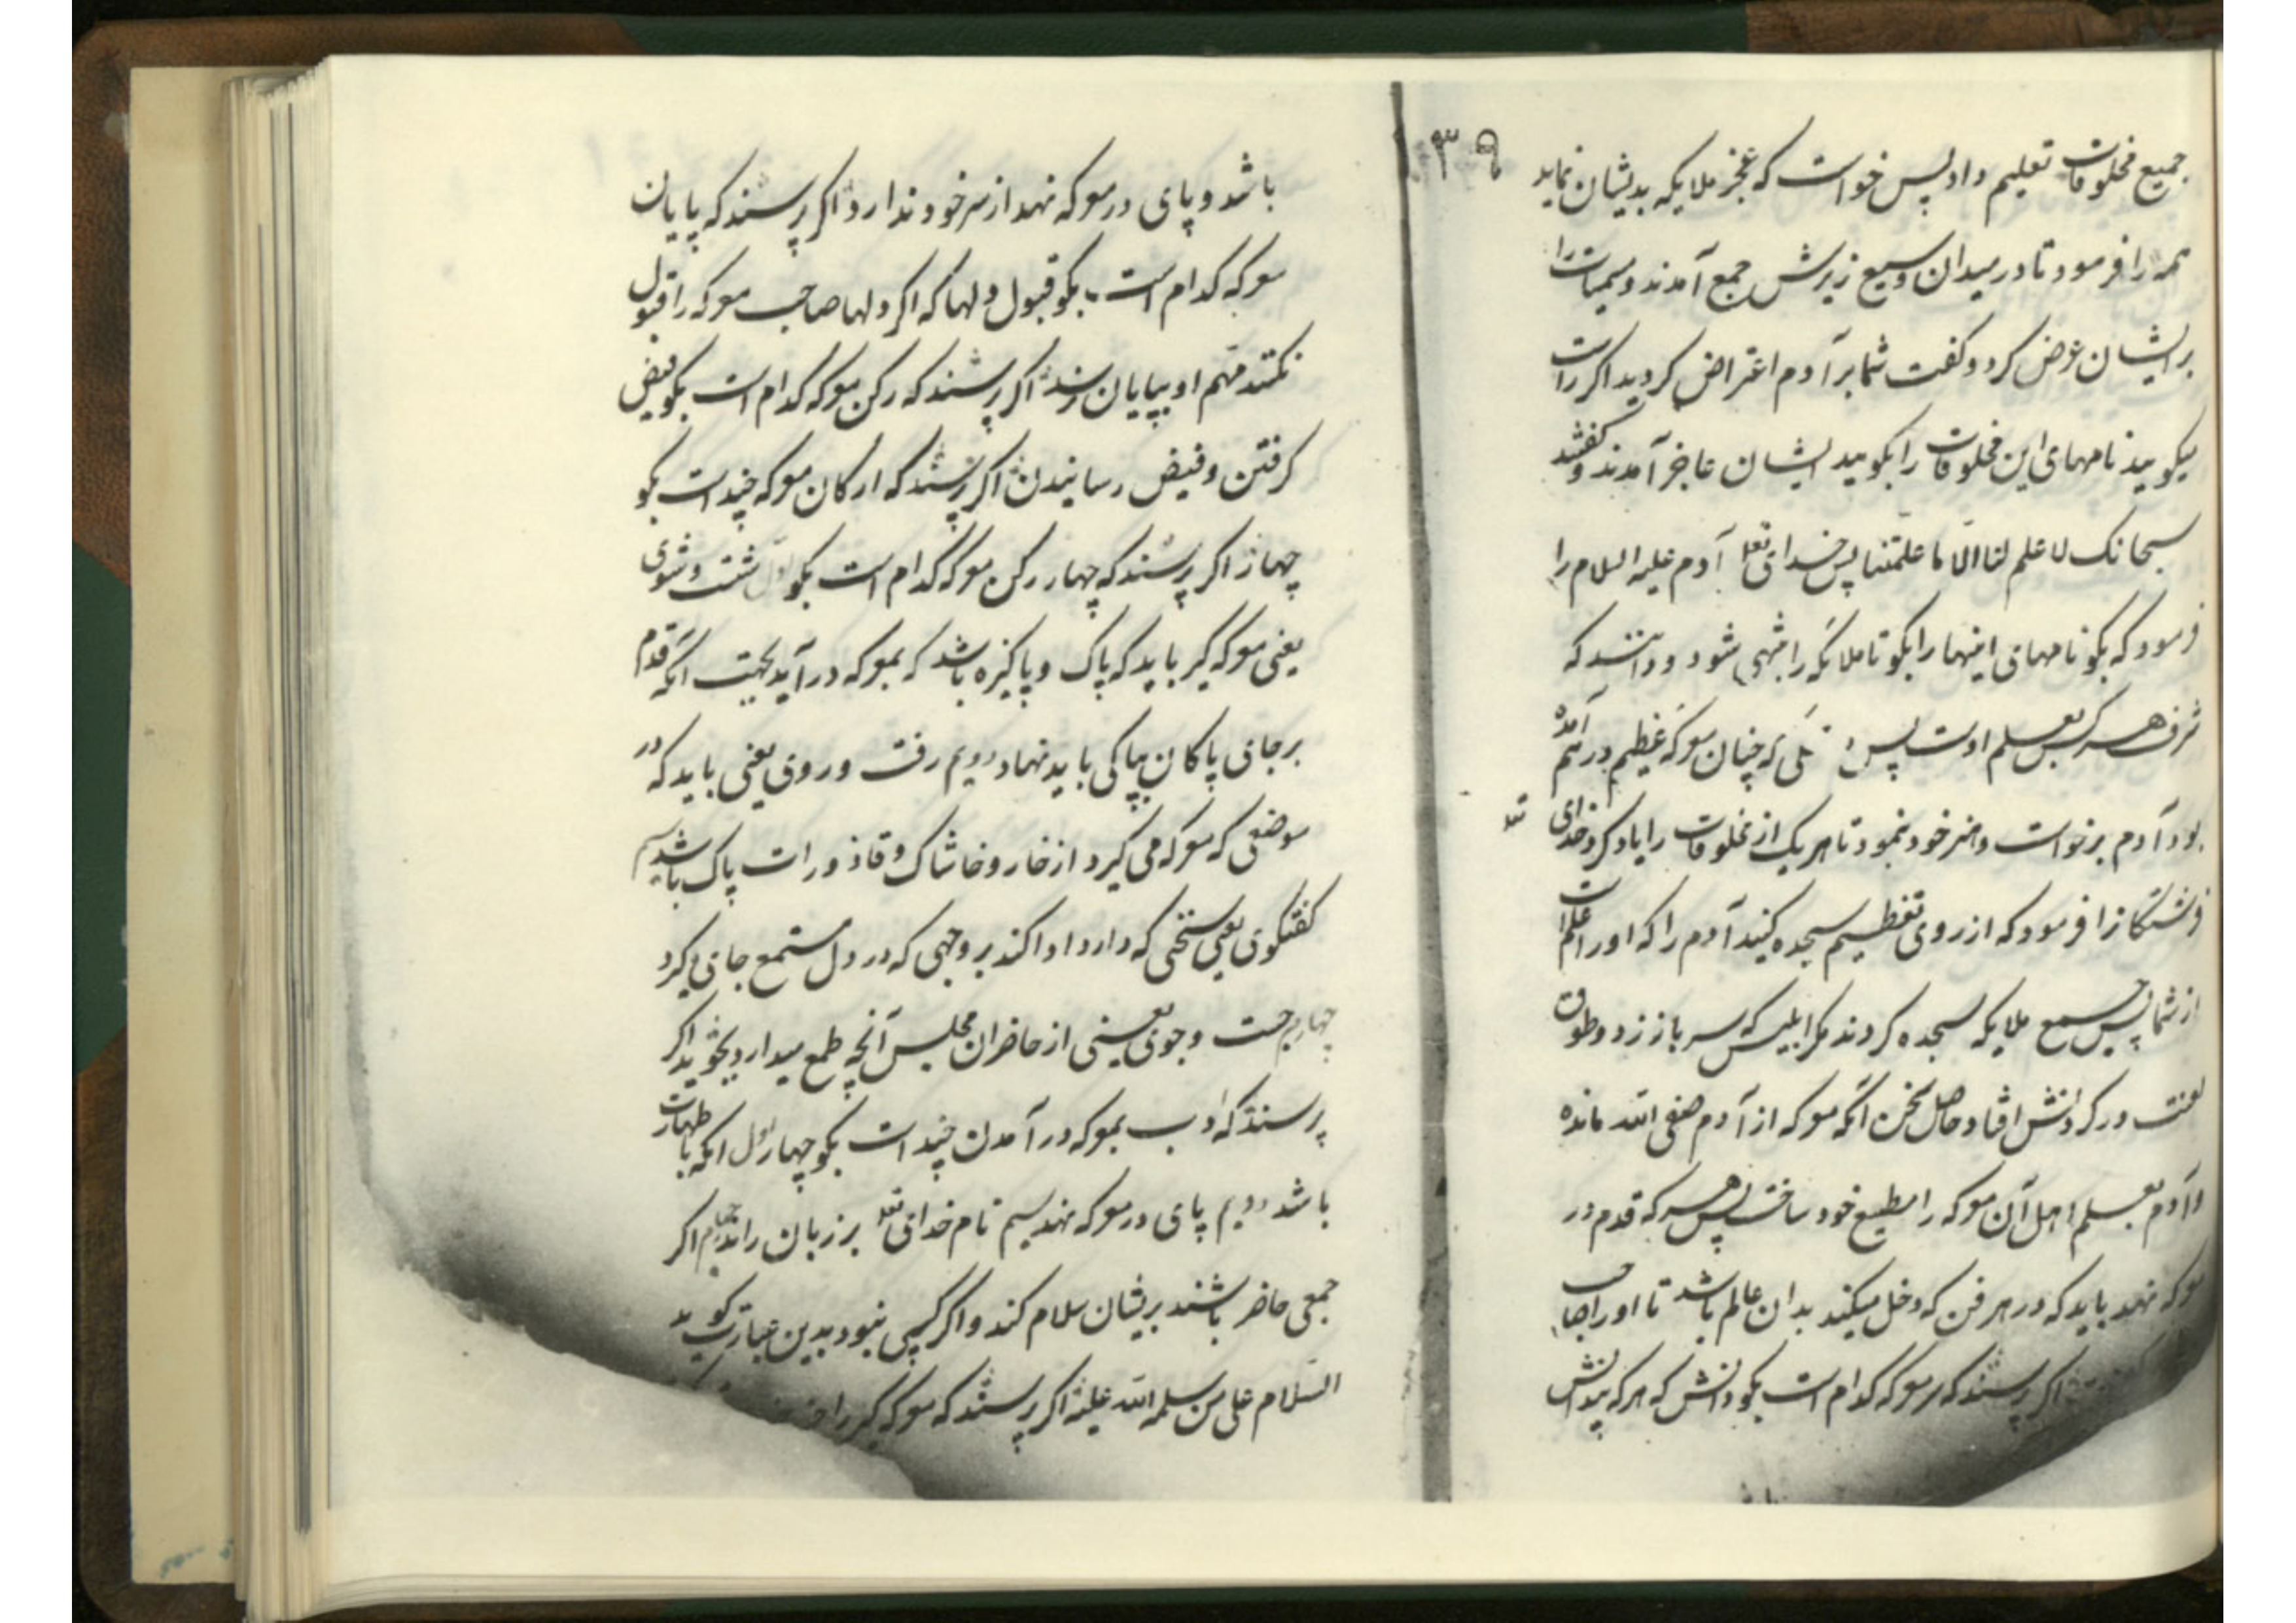 ۱۳۹
جمیع مخلوقات تعلیم داد پس خواست که عجز ملایکه بدیشان نماید
همه را فرمود تا در میدان وسیع زیر عرش جمع آمدند و مسمیات را
بر ایشان عرض کرد و کفت شما بر آدم اعتراض کردید اکر راست
میکویید نامهای این مخلوقات را بکویید ایشان عاجز آمدند و کفتند
سبحانک لا علم لنا الّا ما علمّتنا پس خدای تعا آدم علیه السلام را
فرمود که بکو نامهای اینها را بکو تا ملائکه را شود و دانند که
شرف هر کس بعلم اوست پس که چنان معرکه عظیم درهم آمده
بود آدم برخواست و هنر خود نمود تا هر یک از مخلوقات را یاد کرد خدای تعا
فرشتکانرا فرمود که از روی تعظیم سجده کنید آدم را که او را علم است
از شما پس جمیع ملایکه سجده کردند مکر ابلیس که سر باز زد و طوق
لعنت در کردنش افتاد و حاصل سخن آنکه معرکه از آدم صفی الله مانده
و آدم بعلم اهل آن معرکه را مطیع خود ساخت پس هر که قدم در
معرکه نهد باید که در هر فن که دخل میکند بدان عالم باشد تا او را
اکر پرسند که سر معرکه کدام است بکو دانش که هر که بیدانش
باشد و پای در معرکه نهد از سر خود ندارد اکر پرسند که پایان
معرکه کدام است بکو قبول دلها که اکر دلها صاحب معرکه را قبول
نکنند مهم او بپایان نرسد اکر پرسند که رکن معرکه کدام است بکو فیض
کرفتن و فیض رسانیدن اکر پرسند که ارکان معرکه چند است بکو
چهار اکر پرسند که چهار رکن معرکه کدام است بکو اول شست و شوی
یعنی معرکه کیر باید که پاک و پاکیزه باشد که بمعرکه در آید بجهت آنکه قدم
بر جای پاکان بپاکی باید نهاد دویم رفت و روی یعنی باید که در
موضعی که معرکه می کیرد از خار و خاشاک و قاذورات پاک باشد سیم
کفتکوی یعنی سخنی که دارد ادا کند بر وجهی که در دل مستمع جای کیرد
چهارم جست و جوی یعنی از حاضران مجلس آنچه طمع میدارد بجوید اکر
پرسند که ادب بمعرکه در آمدن چند است بکو چهار اول آنکه با طهارت
باشد دویم پای در معرکه نهد سیم نام خدای تعا بر زبان راند چهارم اکر
جمعی حاضر باشند بریشان سلام کند و اکر کسی نبود بدین عبارت کوید
السّلام علی من سلمه الله علیه اکر پرسند که معرکه کیر را